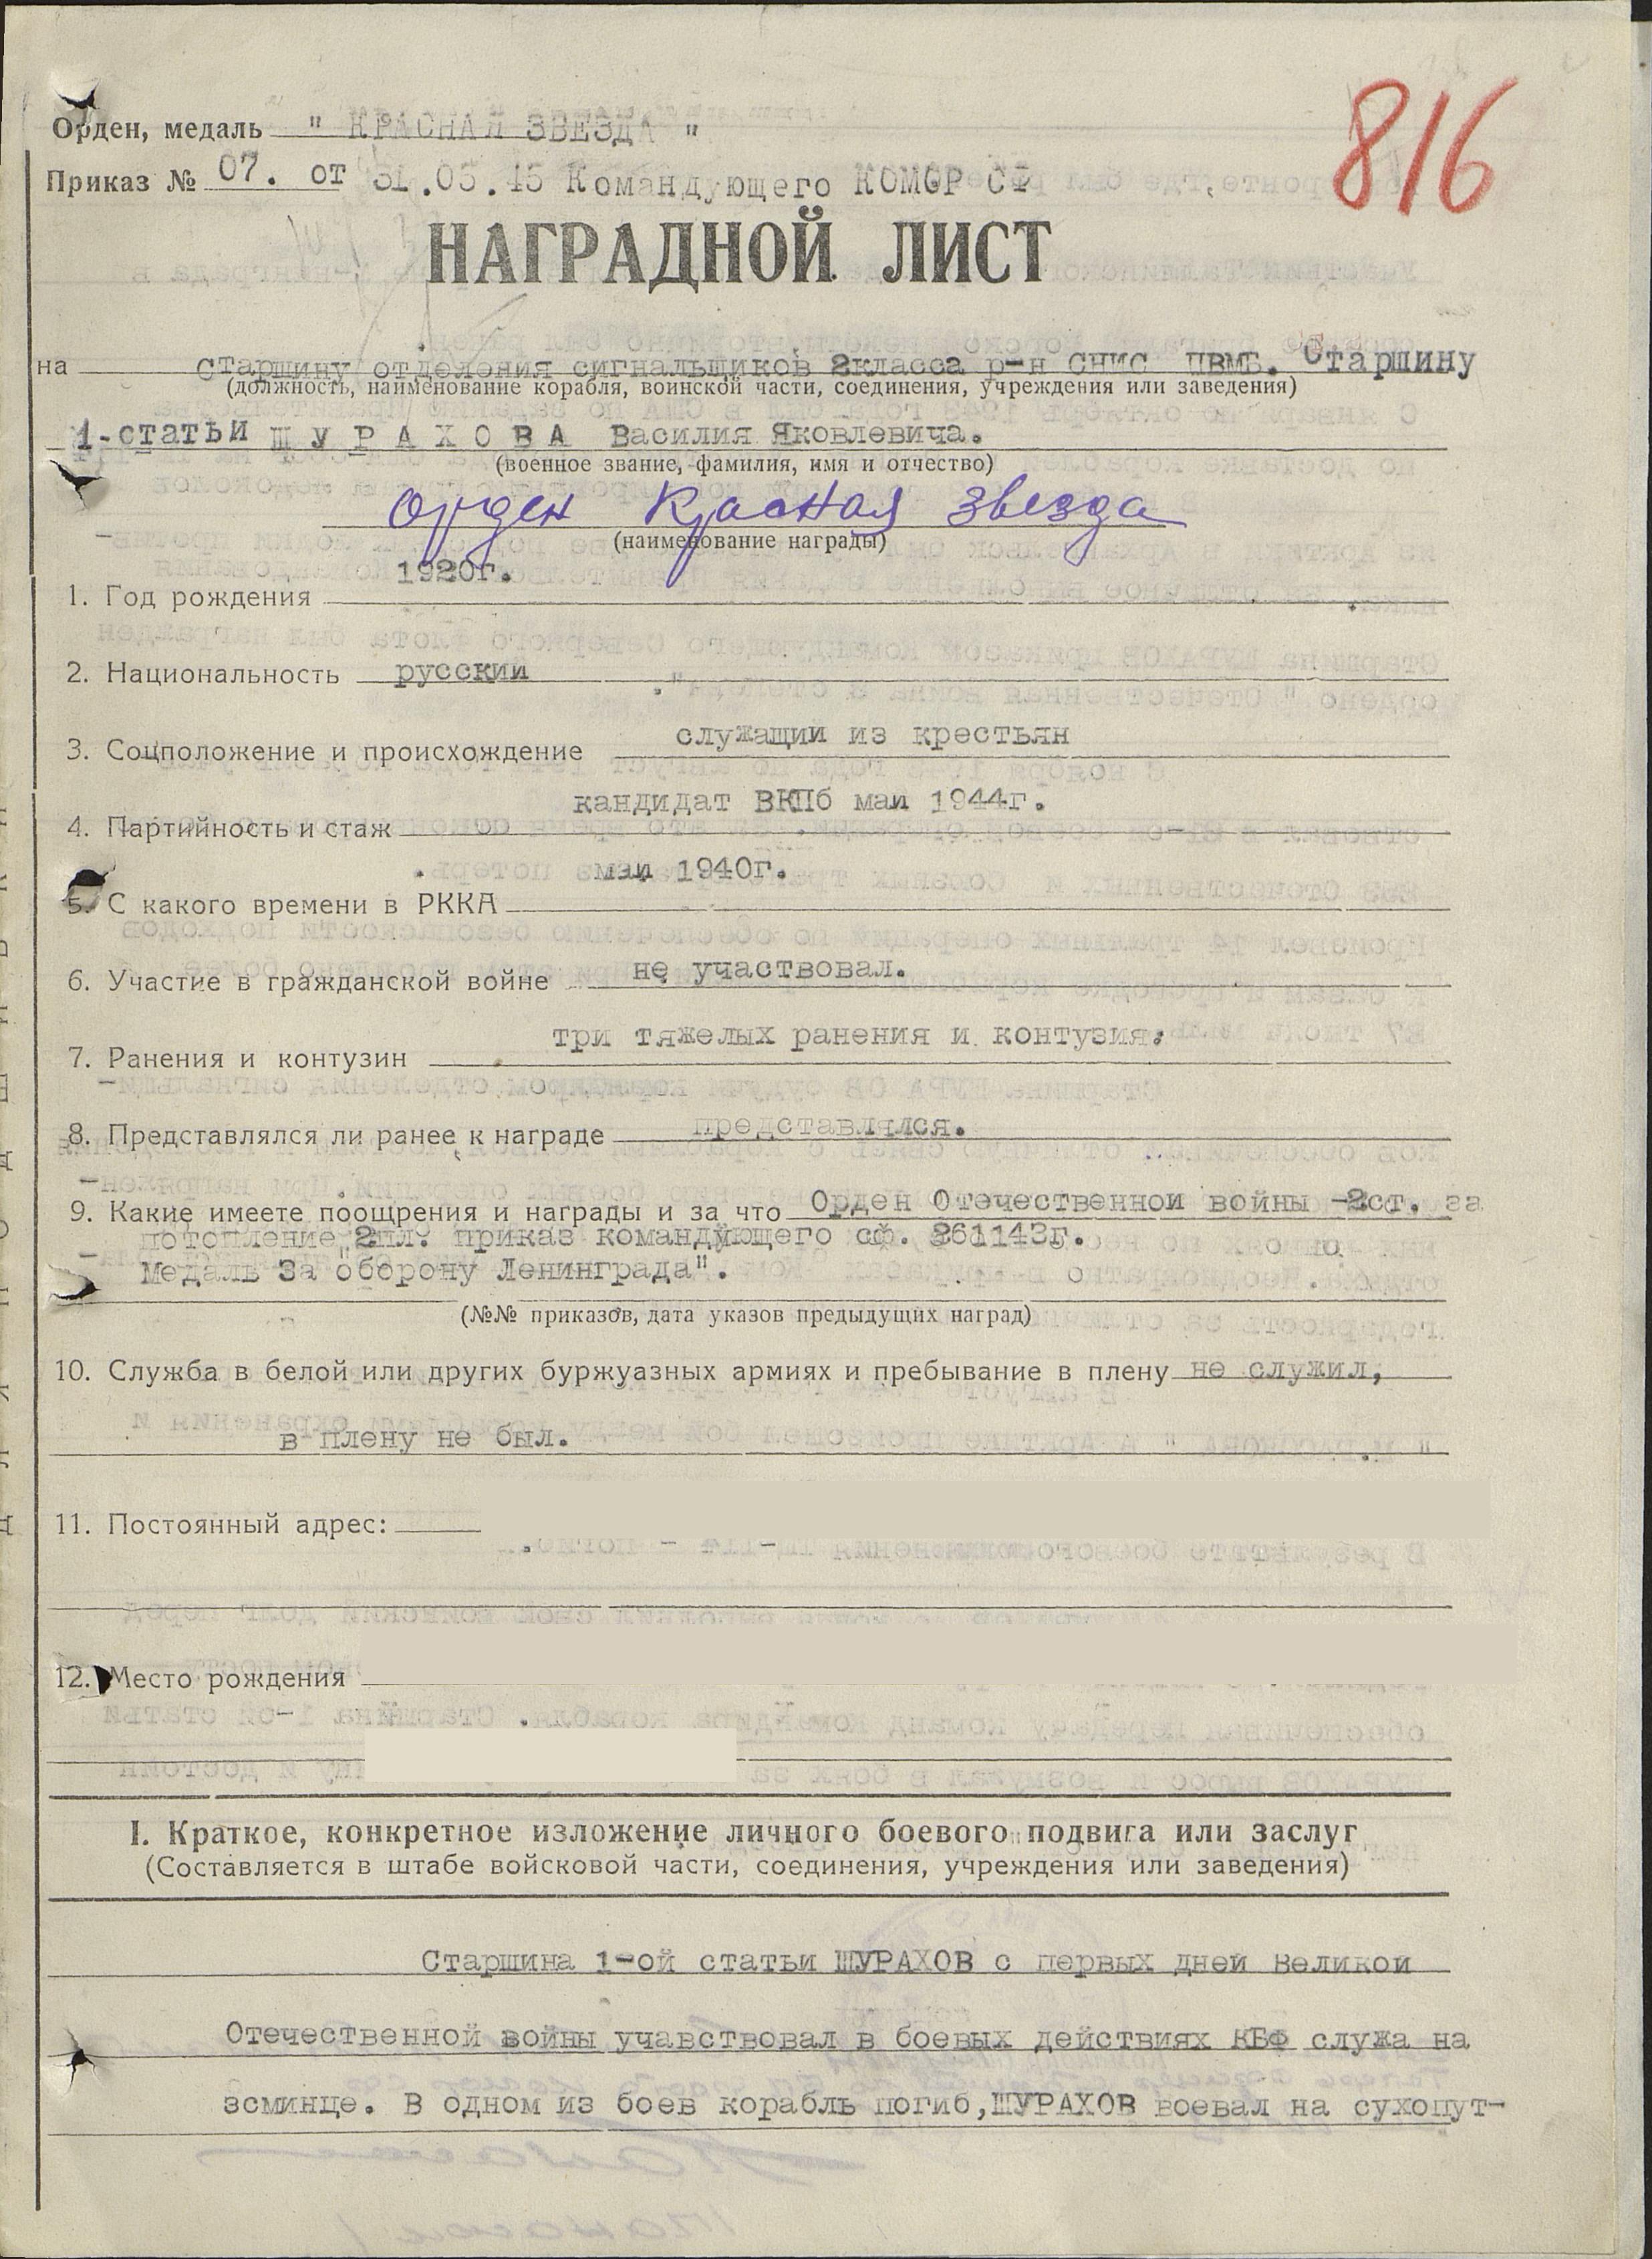 816
Орден, медаль " КРАСНАЯ ЗВЕЗДА "
Приказ № 07. от 31.05.45 Командующего КОМОР СФ
НАГРАДНОЙ ЛИСТ
на старшину отделения сигнальщиков 2класса р-н СНИС ПВМБ. Старшину
(должность, наименование корабля, воинской части, соединения, учреждения или заведения)
1-статьи ШУРАХОВА Василия Яковлевича.
(военное звание, фамилия, имя и отчество)
Орден Красная Звезда
(наименование награды)
1. Год рождения 1920г.
2. Национальность русскии
3. Соцположение и происхождение служащии из крестьян
4. Партийность и стаж кандидат ВКПб маи 1944г.
5. С какого времени в РККА маи 1940г.
6. Участие в гражданской войне не участвовал.
7. Ранения и контузин три тяжелых ранения и контузия.
8. Представлялся ли ранее к награде представлялся.
9. Какие имеете поощрения и награды и за что Орден Отечественнои войны -2ст. за
потопление 2пл. приказ командующего сф. 261143г.
медаль За "оборону Ленинграда".
(№№ приказов, дата указов предыдущих наград)
10. Служба в белой или других буржуазных армиях и пребывание в плену не служил,
в плену не был.
11. Постоянный адрес:
12. Место рождения
I. Краткое, конкретное изложение личного боевого подвига или заслуг
(Составляется в штабе войсковой части, соединения, учреждения или заведения)
Старшина 1-ой статьи ШУРАХОВ с первых дней Великои
Отечественной войны учавствовал в боевых действиях КБФ служа на
эсминце. В одном из боев корабль погиб,ШУРАХОВ воевал на сухопут-